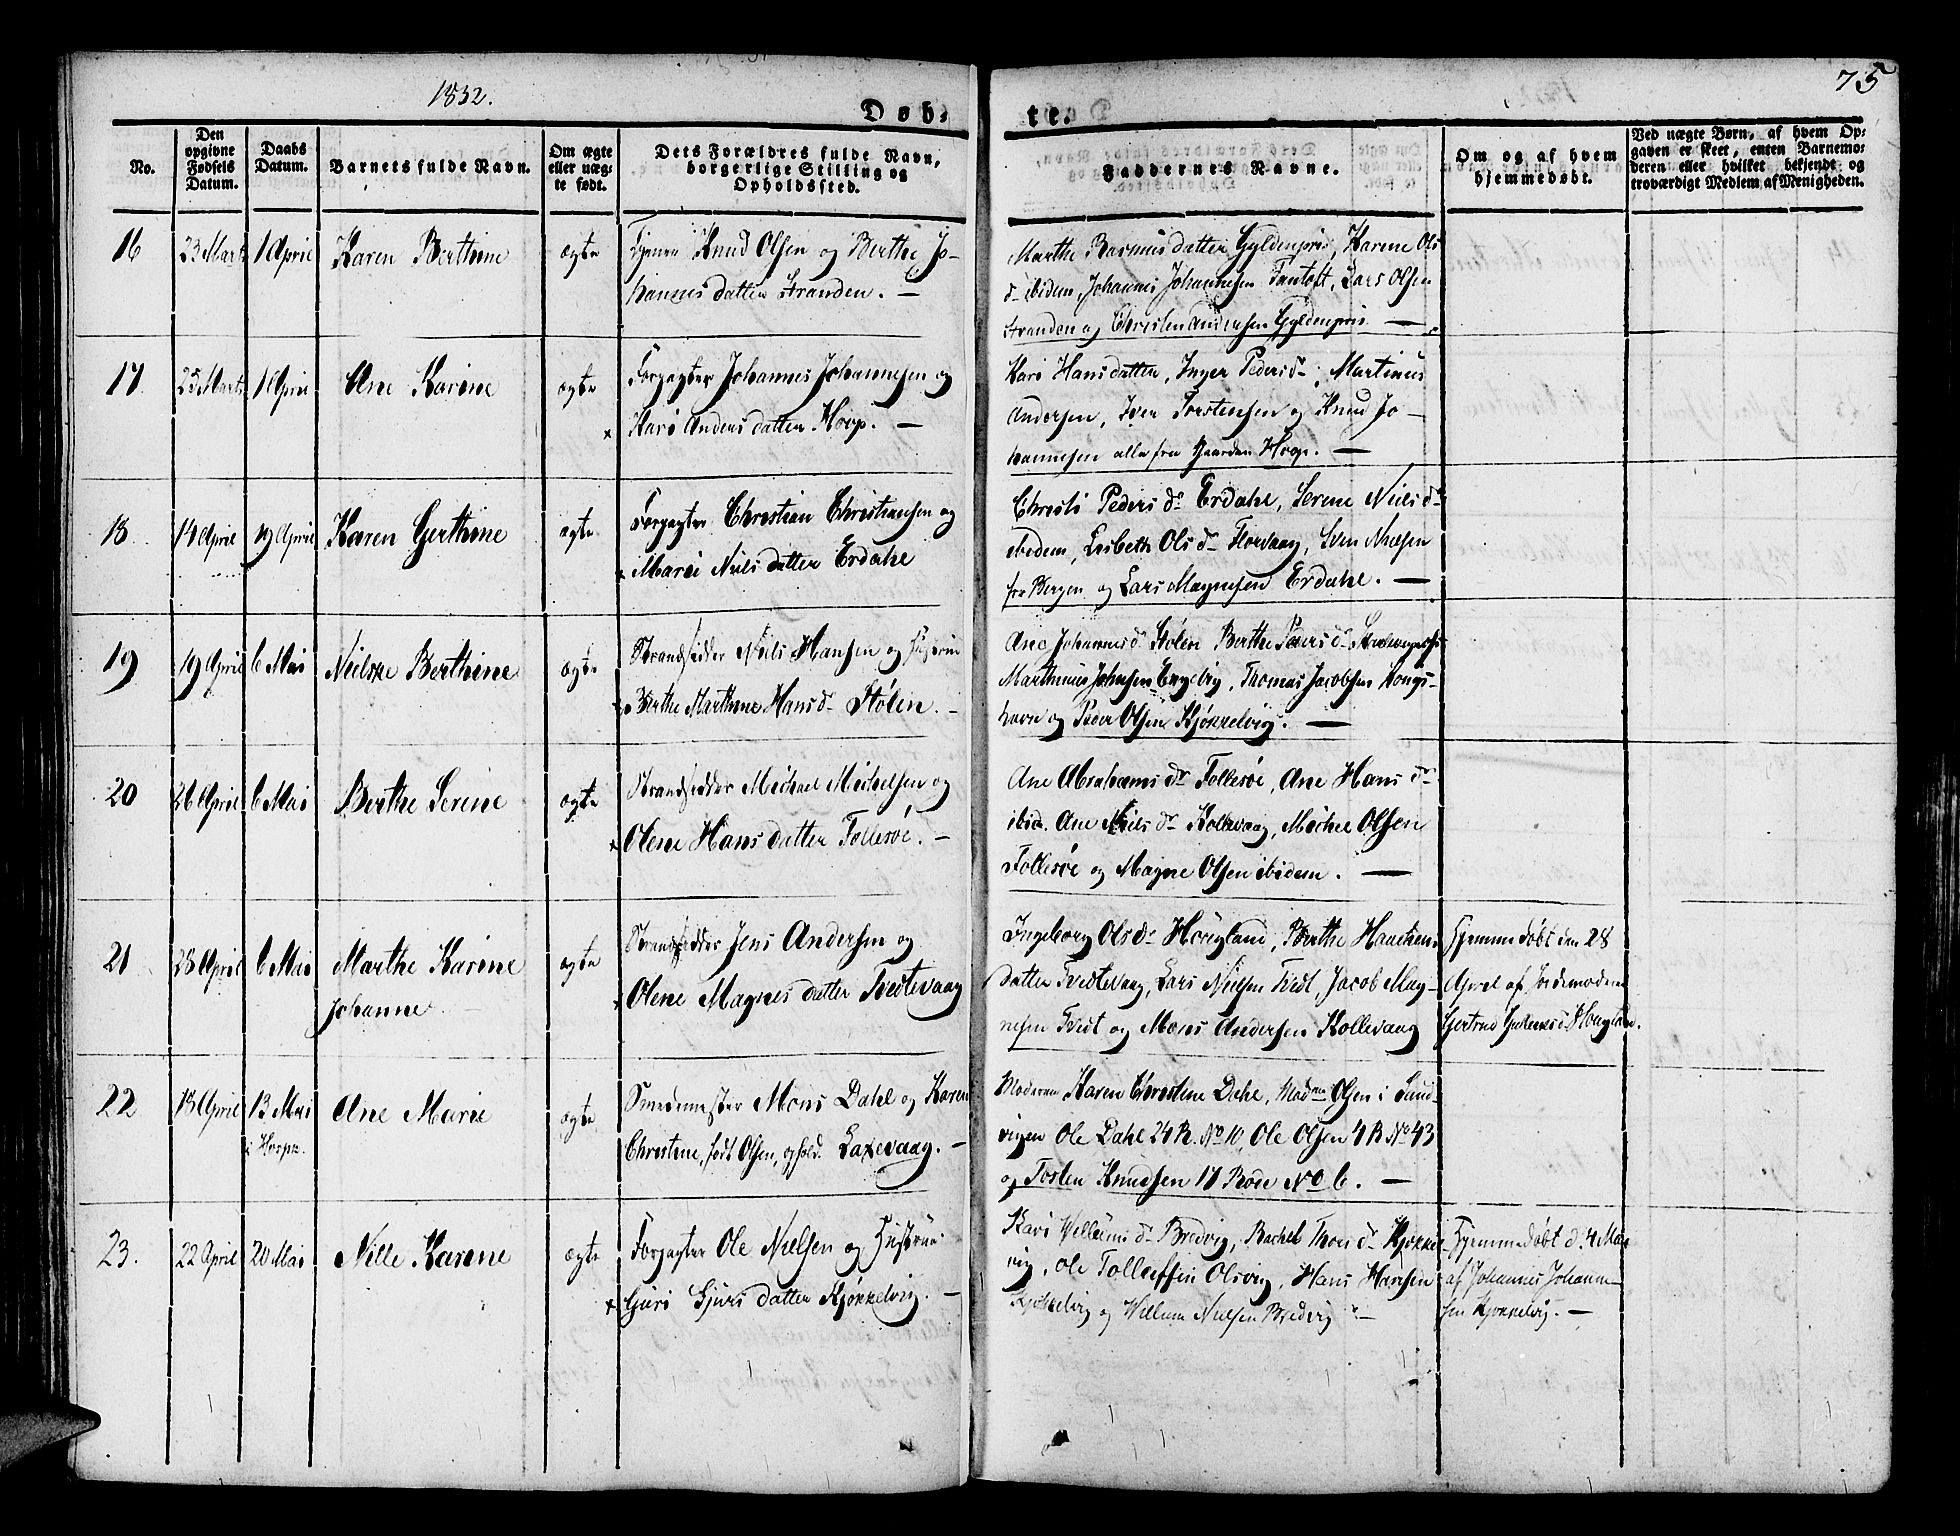 1832.
75
Døb-
te.
No.
Den opgivne Fødsels Datum.
Daabs Datum.
Barnets fulde Navn.
Om ægte eller uægte født.
Dets Forældres fulde Navn, borgerlige Stilling og Opholdssted.
Faddernes Navne.
Om og af hvem hjemmedøbt.
Ved uægte Børn, af hvem Opgaven er skeet, enten Barnemoderen eller hvilket bekjendt og troværdigt Medlem af Menigheden.
16
23 Marts
1 April
Karen Berthine
ægte
Knud Olsen og Berthe Jo-
hannes datter Stranden. —
Marthe Rasmusdatter Gyldenpris, Karene Ols
d- ibidem, Johannes Johannesen Fantoft, Lars Olsen
Stranden og Christen Andersen Gyldenpris —
17.
25 Marts
1 April
Ane Karine
ægte
Forpagter Johannes Johannesen og
x Kari Anders datter Hoop. —
Kari Hansdatter, Inger Peders d-, Martinus
Andersen, Iver Torstensen og Knud Jo-
hannesen alle fra Gaarden Hoop. —
18
14 April
19 April
Karen Gerthine
ægte
Forpagter Christian Christiansen og
x Mari Niels datter Erdahl
Christi Peders d- Erdahl, Serene Niels d-
ibidem, Lisbeth Ols d- Florvaag, Sven Nielsen
fra Bergen og Lars Magnesen Erdahl. —
19
19 April
6 Mai
Nielske Berthine
ægte
Strandsidder Niels Hansen og Hustrue
x Berthe Marthine Hans d- Stølen. —
Ane Johannes d- Stølen Berthe Peders d-
Marthinus Johnsen Engevig, Thomas Jacobsen Kongs-
havn og Peder Olsen Kjøkkelvig. —
20
26 April
6 Mai
Berthe Serine
ægte
Strandsidder Michael Michelsen og
x Olene Hans datter Follesøe. —
Ane Abrahams d- Follesøe, Ane Hans d-
ibid. Ane Niels d- Kollevaag, Michel Olsen
Follesøe og Magne Olsen ibidem. —
21
28 April
6 Mai
Marthe Karine
Johanne
ægte
Strandsidder Jens Andersen og
x Olene Magnes datter Tvedtevaag
Ingeborg Ols d- Høvigland, Berthe Haachens
datter Tvedtevaag, Lars Nielsen Tvedt, Jacob Mag-
nesen Tvedt og Mons Andersen Kollevaag
Hjemmedøbt den 28
April af Jordemoder
Gertrud
22
13 April
13 Mai
i Hoopn.
Ane Marie
ægte
Smedmester Mons Dahl og Karen
Christine, født Olsen, ophold. Laxevaag. —
Moderen Karen Christine Dahl, Mad- Olsen i Sand-
vigen Ole Dahl 24 R. No 10, Ole Olsen 4 R No 43
og Tosten Knudsen 17 Rode No 6. —
23.
22 April
20 Mai
Nille Karine
ægte
Forpagter Ole Nielsen og Hustrue
x Guri Sjurs datter Kjøkkelvig. —
Kari Willums d- Bredvig, Rachel Thors d- Kjøkkel-
vig, Ole Tollefsen Olsvig, Hans Hansen
Kjøkkelvig og Willum Nielsen Bredvig —
Hjemmedøbt d. 4 Mai
af Johannes Johanne-
sen Kjøkkelvig. —